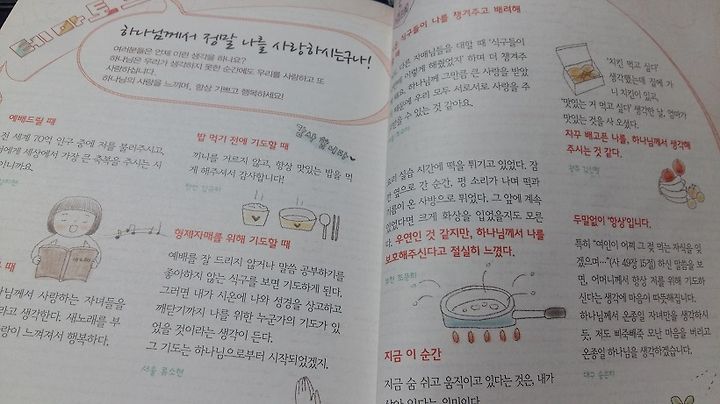 테마토크
하나님께서 정말 나를 사랑하시는구나!
여러분들은 언제 이런 생각을 하나요?
하나님은 우리가 생각하지 못한 순간에도 우리를 사랑하고 또
사랑하십니다.
하나님의 사랑을 느끼며, 항상 기쁘고 행복하세요!
예배드릴 때
전 세계 70억 인구 중에 저를 불러주시고,
에게 세상에서 가장 큰 축복을 주시는 시
니까요.
밥 먹기 전에 기도할 때
끼니를 거르지 않고, 항상 맛있는 밥을 먹
게 해주셔서 감사합니다!
새노래
때
님께서 사랑하는 자녀들을
라고 생각한다. 새노래를 부
랑이 느껴져서 행복하다.
형제자매를 위해 기도할 때
예배를 잘 드리지 않거나 말씀 공부하기를
좋아하지 않는 식구를 보면 기도하게 된다.
그러면 내가 시온에 나와 성경을 상고하고
깨닫기까지 나를 위한 누군가의 기도가 있
었을 것이라는 생각이 든다.
그 기도는 하나님으로부터 시작되었겠지.
서울 류소현
식구들이 나를 챙겨주고 배려해
다른 자매님들을 대할 때 '식구들이
이렇게 해줬었지' 하며 더 챙겨주
하나님께 그만큼 큰 사랑을 받았
때문에 우리 모두 서로서로 사랑을 주
을 수 있는 것 같아요.
요리 실습 시간에 떡을 튀기고 있었다. 잠
옆으로 간 순간, 펑 소리가 나며 떡과
기름이 온 사방으로 튀었다. 그 앞에 계속
있었다면 크게 화상을 입었을지도 모른
다. 우연인 것 같지만, 하나님께서 나를
보호해주신다고 절실히 느꼈다.
지금 이 순간
지금 숨 쉬고 움직이고 있다는 것은, 내가
살아 있다는 의미이다.
'치킨 먹고 싶다'
생각했는데 집에 가
니 치킨이 있고,
'맛있는 거 먹고 싶다' 생각한 날, 엄마가
맛있는 것을 사 오셨다.
자꾸 배고픈 나를, 하나님께서 생각해
주시는 것 같다.
두말없이 '항상'입니다.
특히 "여인이 어찌 그 젖 먹는 자식을 잊
겠으며…"(사 49장 15절) 하신 말씀을 보
면, 어머니께서 항상 저를 위해 기도하
신다는 생각에 마음이 따뜻해집니다.
하나님께서 온종일 자녀만을 생각하시
듯, 저도 삐죽빼죽 모난 마음을 버리고
온종일 하나님을 생각하겠습니다.
대구 송은하